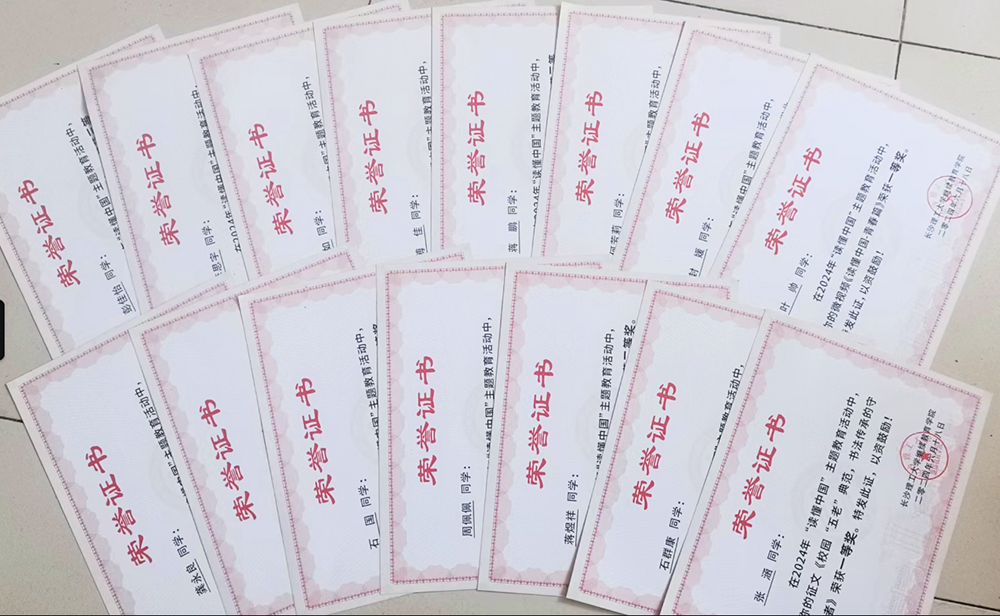 荣誉证书
喻佳怡 同学：
中国”主题教育活动中，
荣誉证书
思宇 同学：
“读懂中国”主题教育活动中，
荣誉证书
同学：
在2024年“读懂中国”主题教育活动中，
荣誉证书
佳 同学：
主题教育活动中，
荣誉证书
蒋 鹏 同学：
2024年“读懂中国”主题教育活动中，
荣誉证书
安莉 同学：
“读懂中国”主题教育活动中，
荣誉证书
封 媛 同学：
“读懂中国”主题教育活动中，
荣誉证书
叶 帅 同学：
在2024年“读懂中国”主题教育活动中，
的微视频《读懂中国·青春篇》荣获一等奖。
发此证，以资鼓励！
长沙理工大学继续教育学院
二〇二四年六月十八日
荣誉证书
龚永良 同学：
“读懂中国”主题教育活动中，
荣誉证书
荣誉证书
石 国 同学：
中国”主题教育活动中，
荣誉证书
周佩佩 同学：
“读懂中国”主题教育活动中，
荣誉证书
蒋煜祥 同学：
“读懂中国”主题教育活动中，
二等奖。
荣誉证书
石群康 同学：
主题教育活动中，
荣誉证书
张 涵 同学：
在2024年“读懂中国”主题教育活动中，
的征文《校园“五老”典范，书法传承的守
者》荣获一等奖。特发此证，以资鼓励！
长沙理工大学继续教育学院
二〇二四年六月十八日